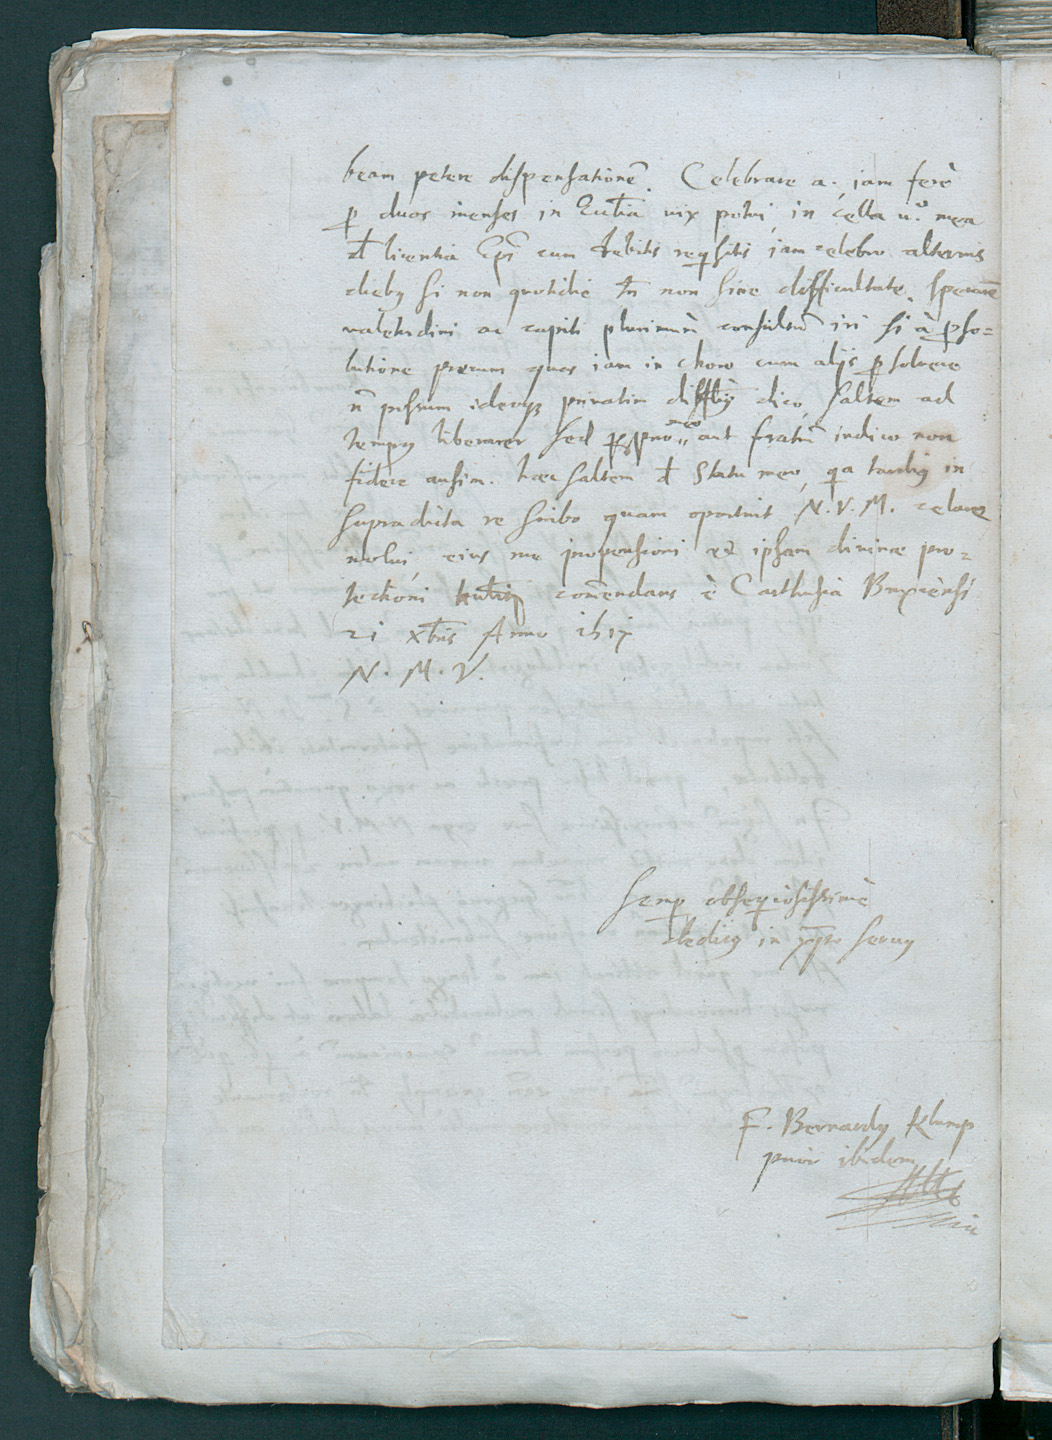 beam petere dispensationē. Celebrare a. iam ferè
p duos menses in Ecclīa vix potui, in cella v.º mea
d licentia Epī cum debitis reqsitis iam celebro alternis
dieb9 si non quotidie tn̄ non sine difficultate. sperarē
valetudini ac capiti plurimùm consultū iri si à pso=
lutione precum quas iam in choro cum alijs psolvere
n̄ possum ideoq3 privatim dico, saltem ad
temp9 liberarer sed meo aut fratrū iudicio non
fidere ausim. haec saltem d statu meo, qa tardi9 in
supradicta re scribo quam oportuit N. V. M. celare
nolui, eius me propensioni et ipsam divinae pro=
tectioni comendans è Carthusia Buxiensi
21 xbris Anno 1617
N. M. V.
semp obseqiosissimè
dedit9 in xpto serv9
F. Bernard9 Klump
prior ibidem